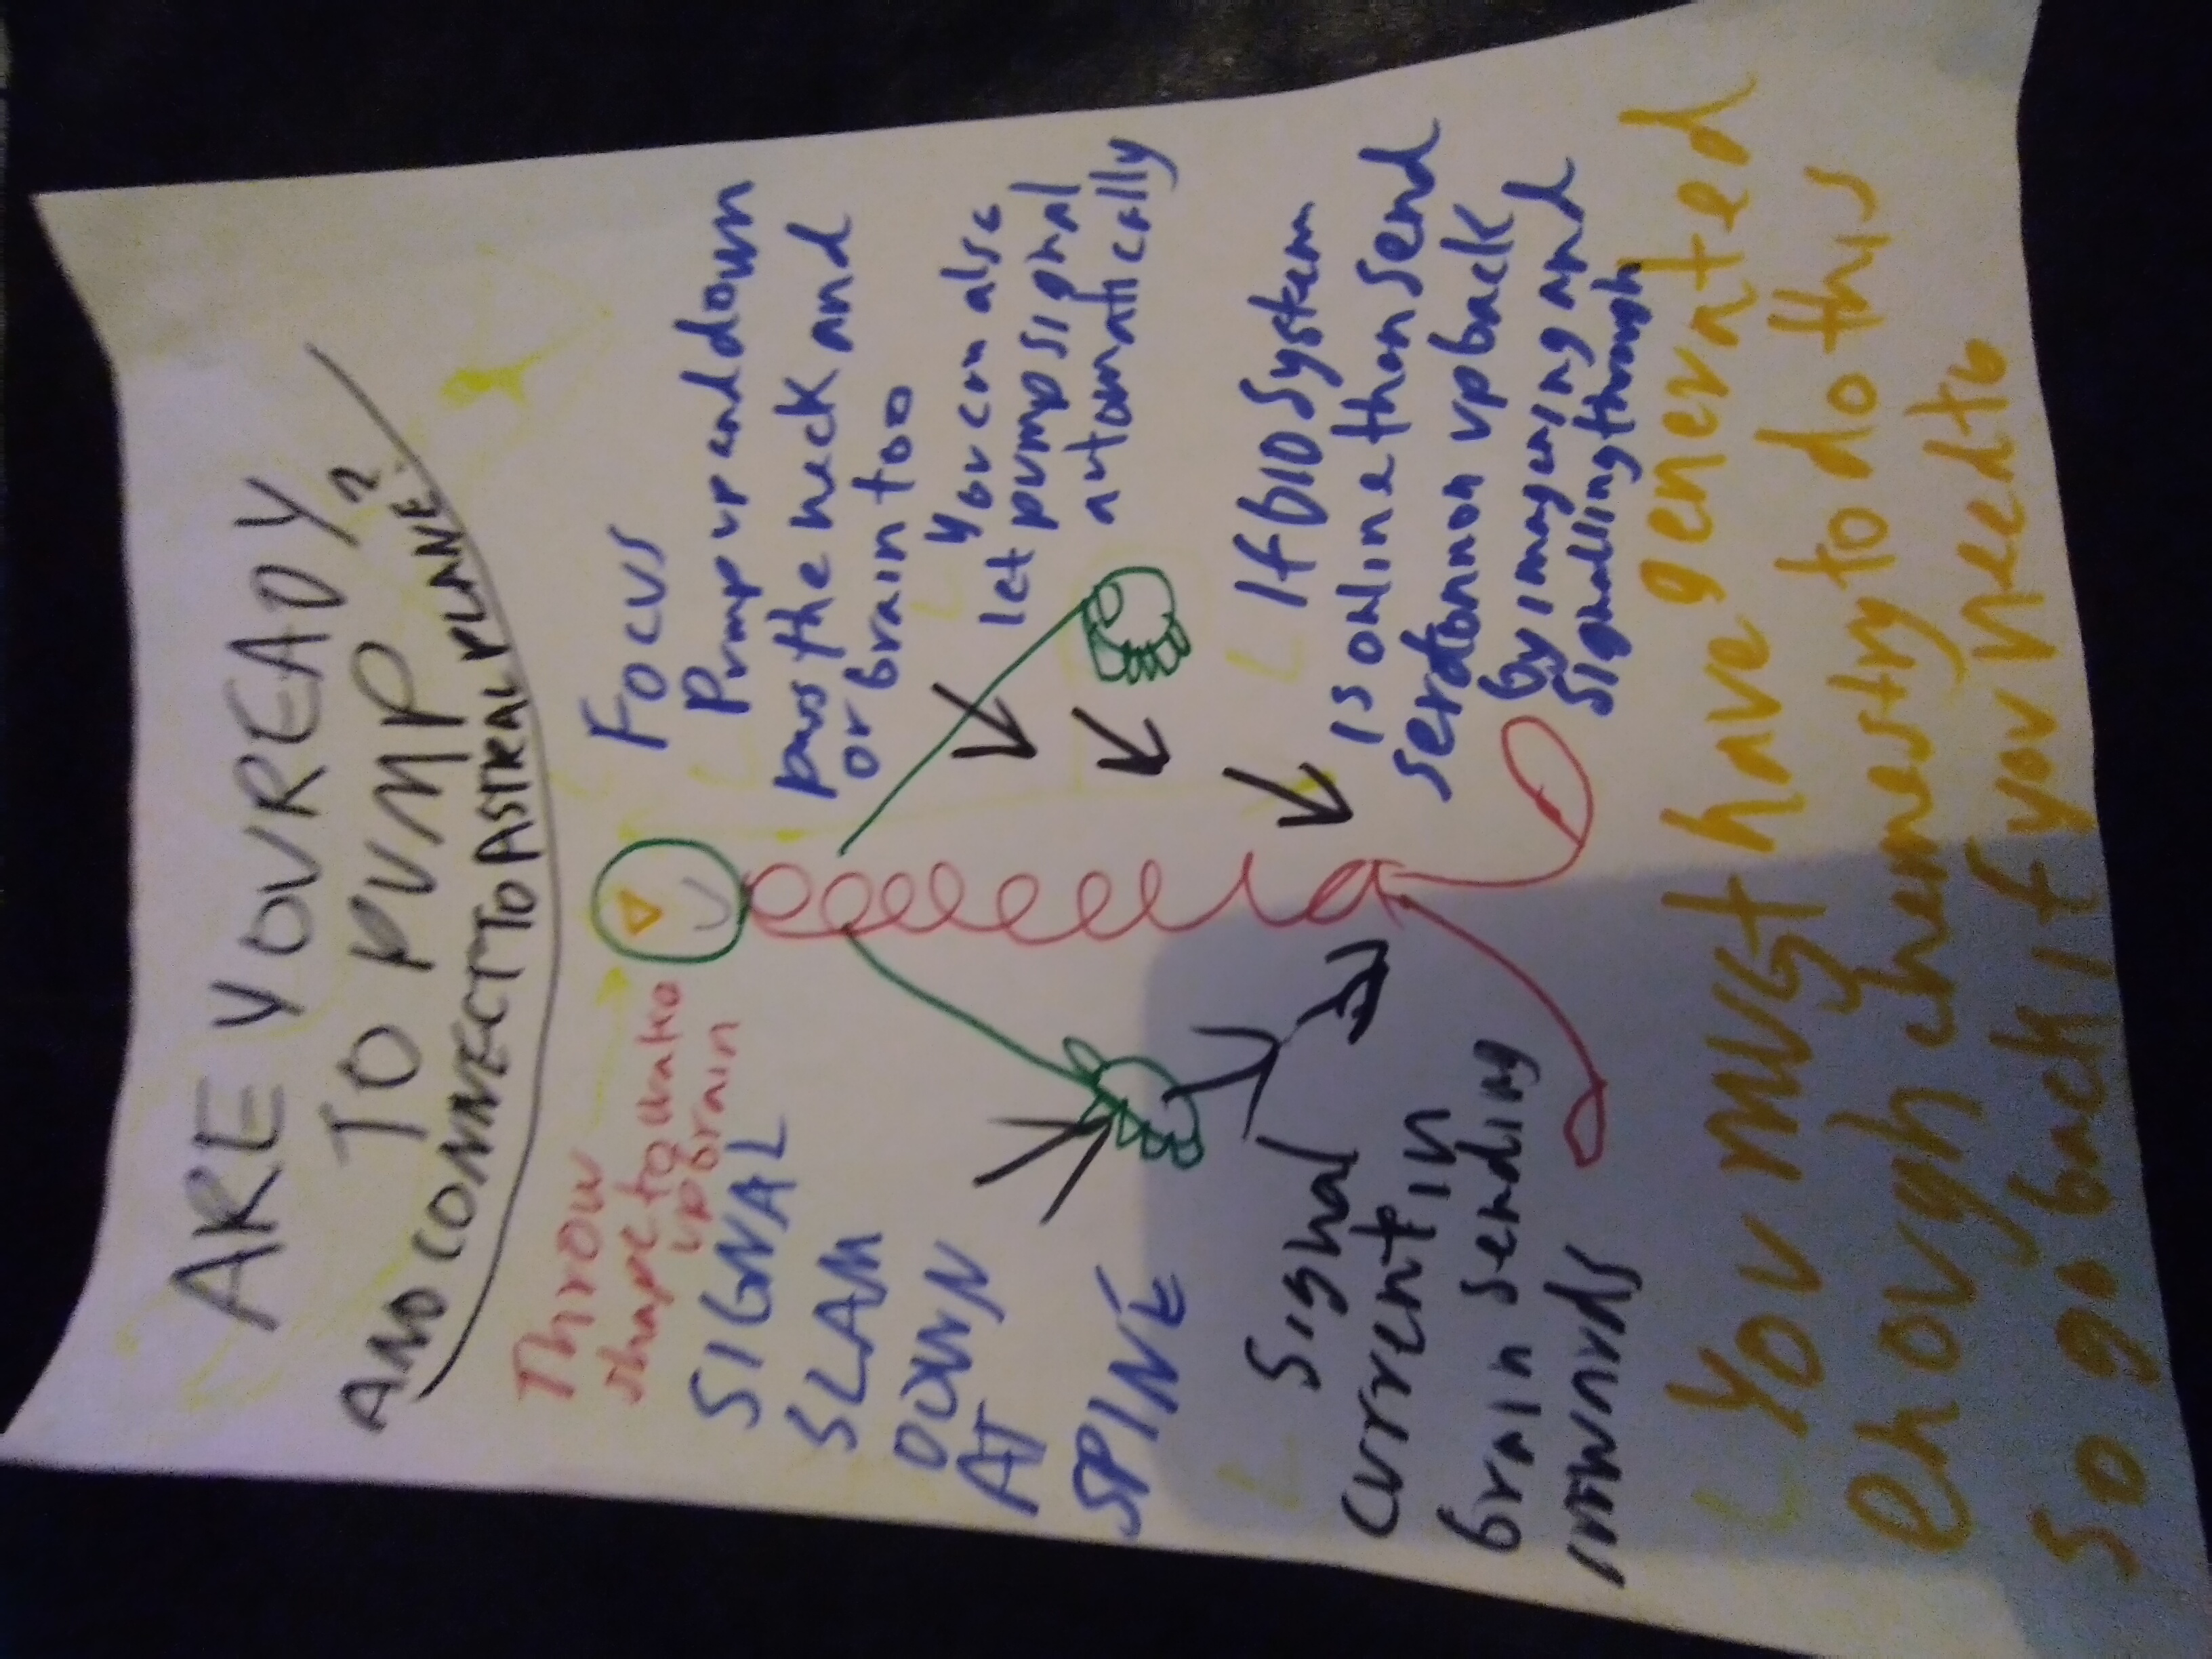 ARE YOU READY
TO PUMP
AND CONNECT TO ASTRAL PLANE?
Throw
shape to wake
up brain
SIGNAL
SLAM
DOWN
AT
SPINE
Signal
current in
brain sending
inwards
FOCUS
Pump up and down
past the neck and
or brain too
You can also
let pump signal
automatically
If bio system
is online than send
serotonnon up back
by imagening and
signalling through
You must have generated
enough chemestry to do this
so go back if you need to